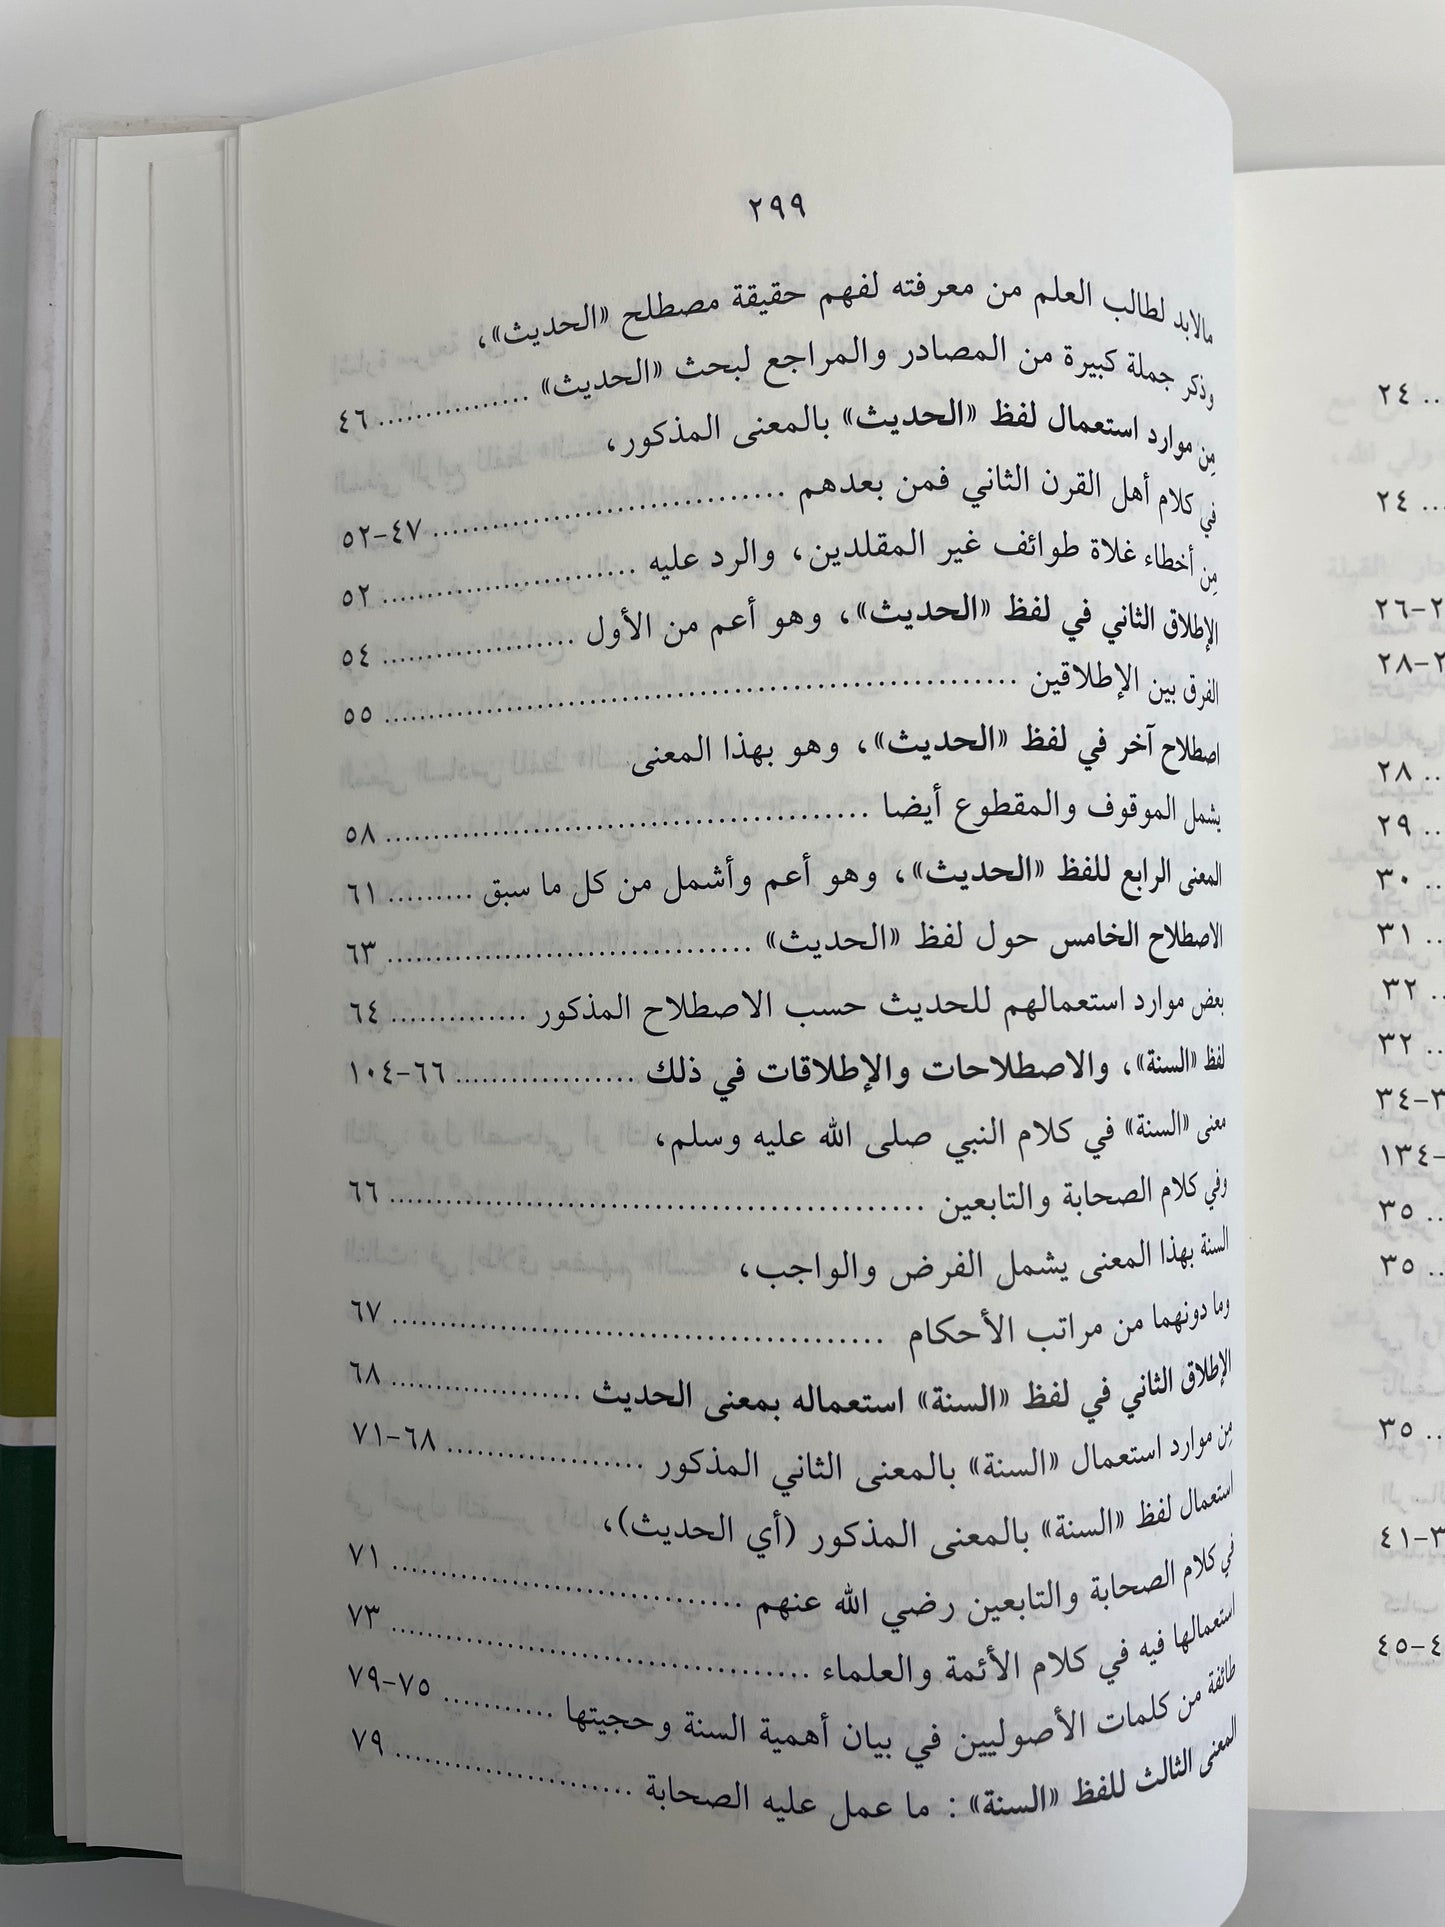 ٢٩٩
مالابد لطالب العلم من معرفته لفهم حقيقة مصطلح «الحديث»،
وذكر جملة كبيرة من المصادر والمراجع لبحث «الحديث» ................ ٤٦
مِن موارد استعمال لفظ «الحديث» بالمعنى المذكور،
في كلام أهل القرن الثاني فمن بعدهم .................................... ٤٧-٥٢
مِن أخطاء غلاة طوائف غير المقلدين، والرد عليه .......................... ٥٢
الإطلاق الثاني في لفظ «الحديث»، وهو أعم من الأول .................... ٥٤
الفرق بين الإطلاقين .................................................................. ٥٥
اصطلاح آخر في لفظ «الحديث»، وهو بهذا المعنى
يشمل الموقوف والمقطوع أيضا .................................................. ٥٨
المعنى الرابع للفظ «الحديث»، وهو أعم وأشمل من كل ما سبق ......... ٦١
الاصطلاح الخامس حول لفظ «الحديث» ...................................... ٦٣
بعض موارد استعمالهم للحديث حسب الاصطلاح المذكور .............. ٦٤
لفظ «السنة»، والاصطلاحات والإطلاقات في ذلك ................... ٦٦-١٠٤
معنى «السنة» في كلام النبي صلى الله عليه وسلم،
وفي كلام الصحابة والتابعين ........................................................ ٦٦
السنة بهذا المعنى يشمل الفرض والواجب،
وما دونهما من مراتب الأحكام .................................................... ٦٧
الإطلاق الثاني في لفظ «السنة» استعماله بمعنى الحديث .................... ٦٨
مِن موارد استعمال «السنة» بالمعنى الثاني المذكور ..................... ٦٨-٧١
استعمال لفظ «السنة» بالمعنى المذكور (أي الحديث)،
في كلام الصحابة والتابعين رضي الله عنهم .................................... ٧١
استعمالها فيه في كلام الأئمة والعلماء .......................................... ٧٣
طائفة من كلمات الأصوليين في بيان أهمية السنة وحجيتها ............ ٧٥-٧٩
المعنى الثالث للفظ «السنة» : ما عمل عليه الصحابة ........................ ٧٩
.. ٢٤
... ٢٤
.. ٢٨
.. ٢٩
.. ٣٠
.. ٣١
.. ٣٢
.. ٣٢
.. ٣٥
.. ٣٥
.. ٣٥